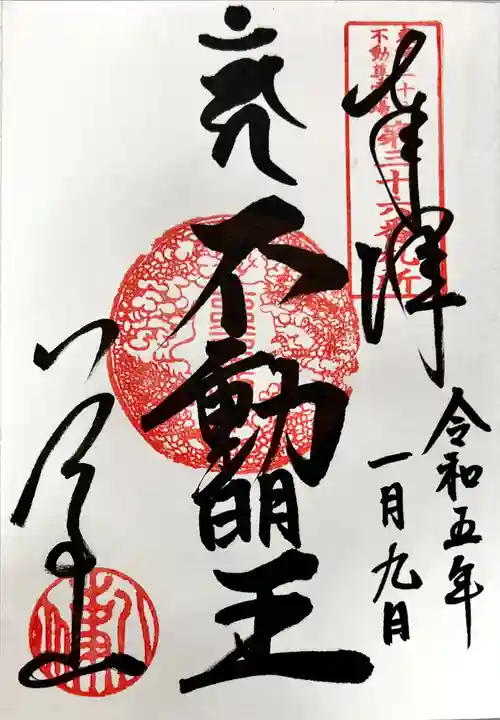 奉拝
第三十六番札所
不動尊霊場
不動明王
令和五年
一月九日